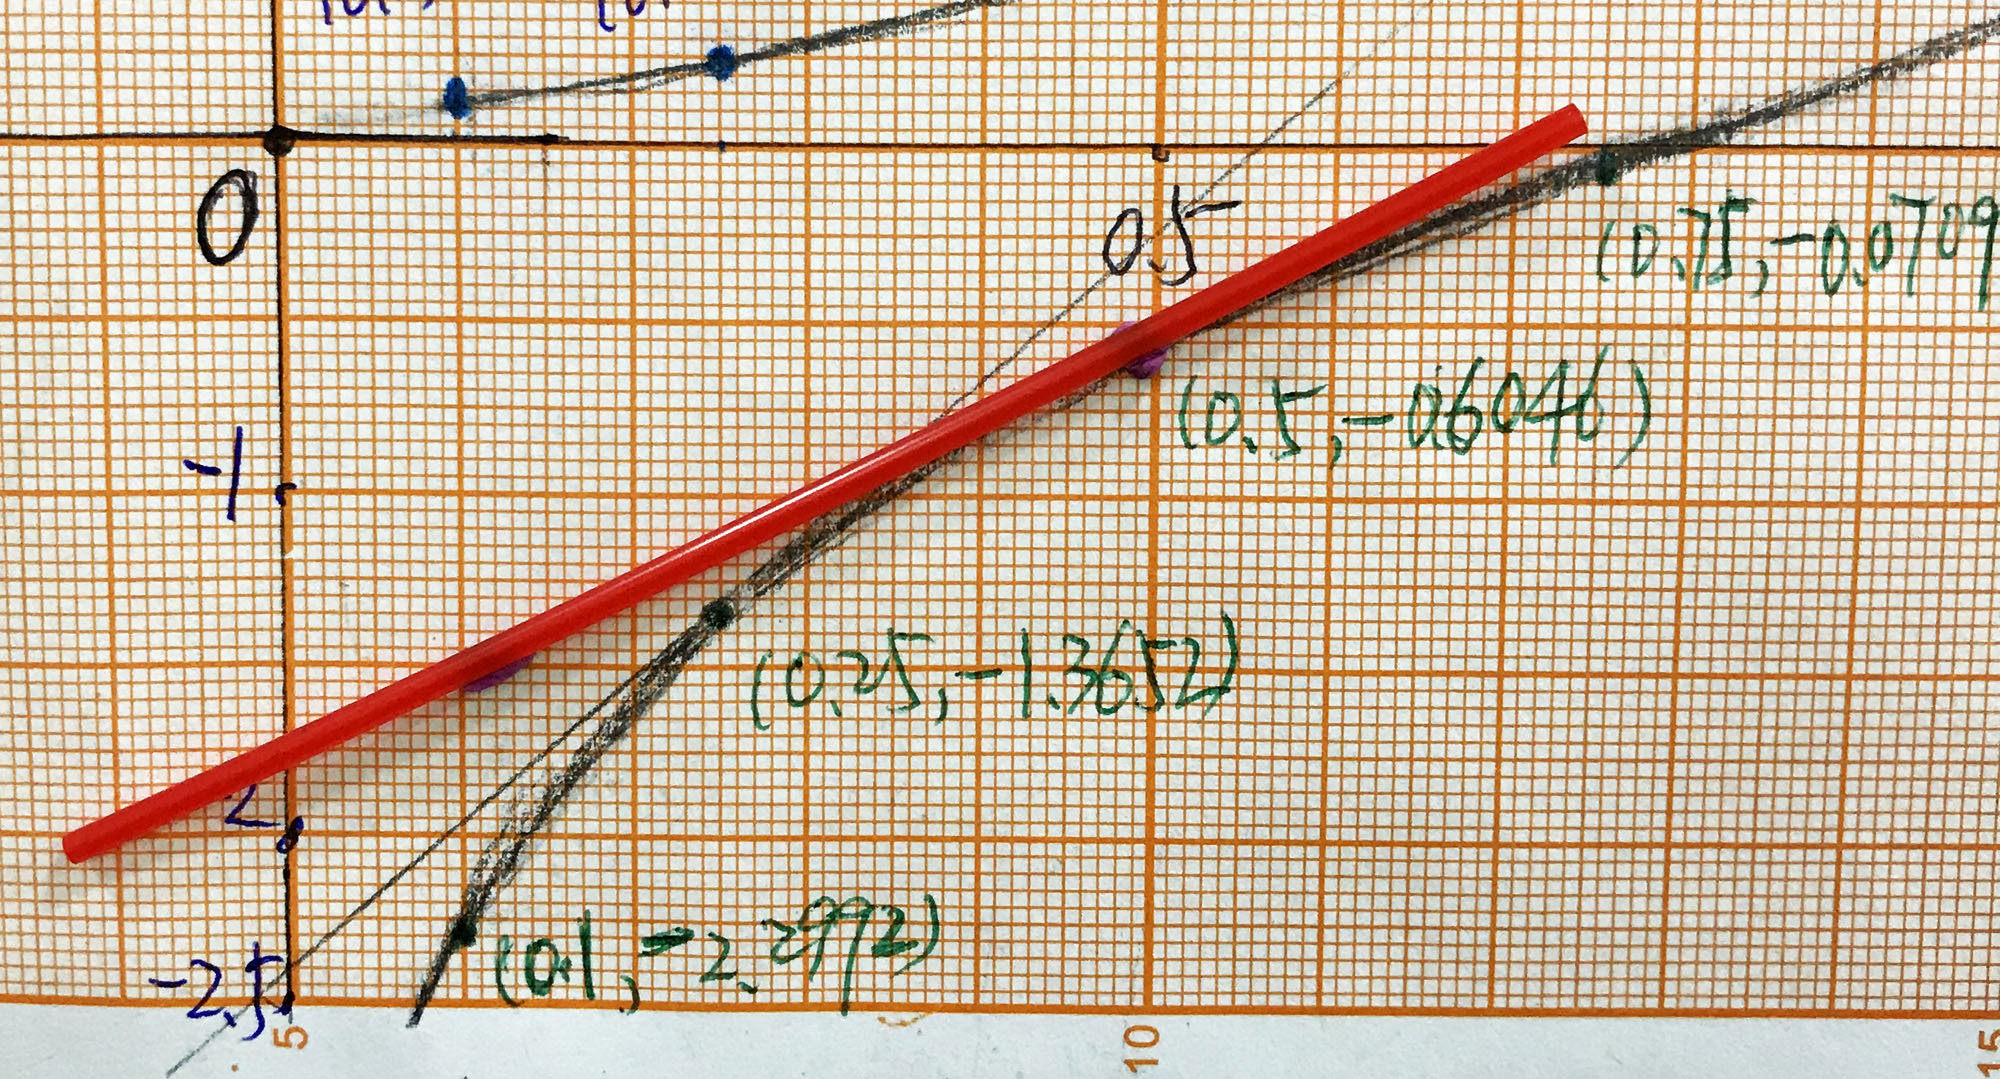 0
0.5
(0.75, -0.0709
-1
(0.5, -0.6046)
(0.25, -1.3652)
2
(0.1, -2.2992)
-2.5
5
10
15